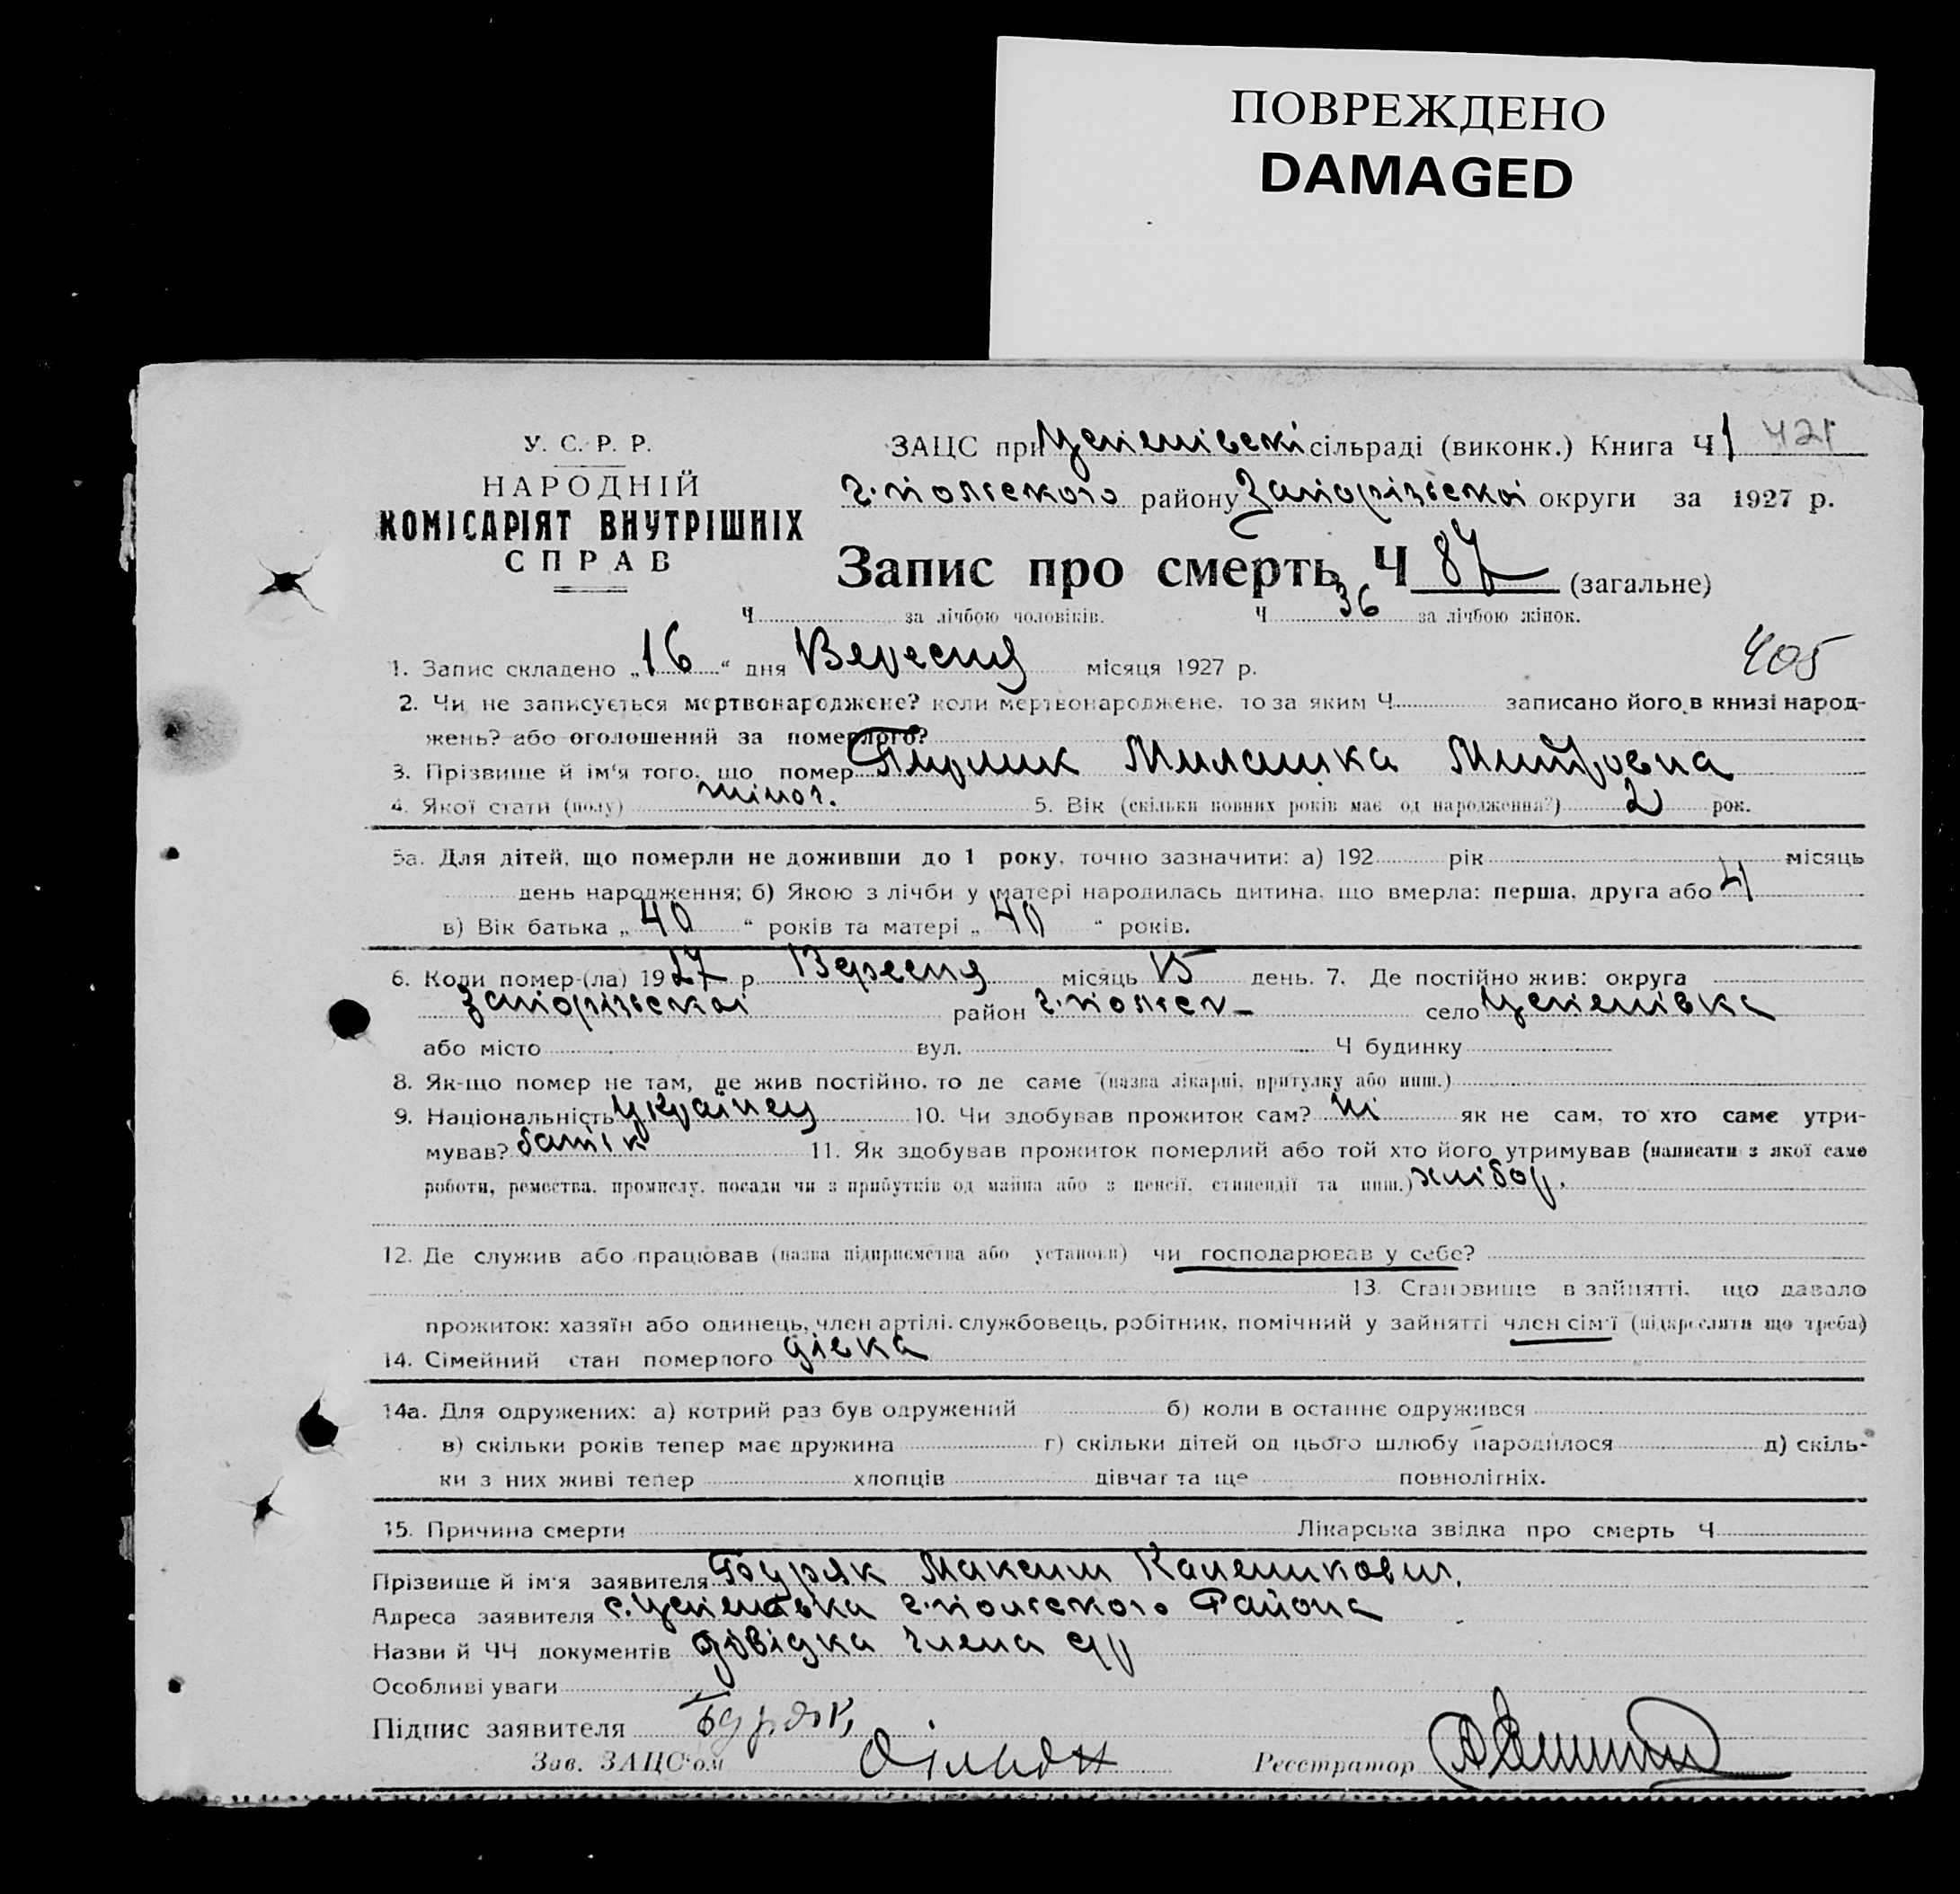 ПОВРЕЖДЕНО
DAMAGED
У. С. Р. Р.
НАРОДНІЙ
КОМІСАРІЯТ ВНУТРІШНІХ
СПРАВ
ЗАЦС при Успенівскі сільраді (виконк.) Книга Ч 1 421
г.польского району Запорізьскої округи за 1927 р.
Запис про смерть Ч 87 (загальне)
Ч за лічбою чоловіків. Ч 36 за лічбою жінок.
1. Запис складено „16“ дня Вересня місяця 1927 р. 405
2. Чи не записується мертвонароджене? коли мертвонароджене, то за яким Ч записано його в книзі народ-
жень? або оголошений за померлого?
3. Прізвище й ім'я того, що помер Милашка Митровна
4. Якої стати (полу) жіноч. 5. Вік (скільки повних років має од народження?) 2 рок.
5а. Для дітей, що померли не доживши до 1 року, точно зазначити: а) 192 рік місяць
день народження; б) Якою з лічби у матері народилась дитина, що вмерла: перша, друга або 4
в) Вік батька „40“ років та матері „40“ років.
6. Коли помер-(ла) 1927 р. Вересня місяць 15 день. 7. Де постійно жив: округа
Запорізьскої район г.польск- село Успенівка
або місто вул. Ч будинку
8. Як-що помер не там, де жив постійно, то де саме (назва лікарні, притулку або инш.)
9. Національність Українец 10. Чи здобував прожиток сам? ні як не сам, то хто саме утри-
мував? батьк 11. Як здобував прожиток померлий або той хто його утримував (написати з якої само
роботи, ремества, промислу, посади чи з прибутків од майна або з пенсії, стипендії та инш.) хлібор.
12. Де служив або працював (назва підприємства або установи) чи господарював у себе?
13. Становище в зайнятті, що давало
прожиток: хазяїн або одинець, член артілі, службовець, робітник, помічний у зайнятті член сім'ї (підкреслити що треба)
14. Сімейний стан померлого дівка
14а. Для одружених: а) котрий раз був одружений б) коли в останнє одружився
в) скільки років тепер має дружина г) скільки дітей од цього шлюбу народилося д) скіль-
ки з них живі тепер хлопців дівчат та ще повнолітніх.
15. Причина смерти Лікарська звідка про смерть Ч
Прізвище й ім'я заявителя Буряк Максим
Адреса заявителя с. Успенівка г.польского Района
Назви й ЧЧ документів довідка члена с/р
Особливі уваги
Підпис заявителя Буряк
Зав. ЗАЦС'ом Реєстратор